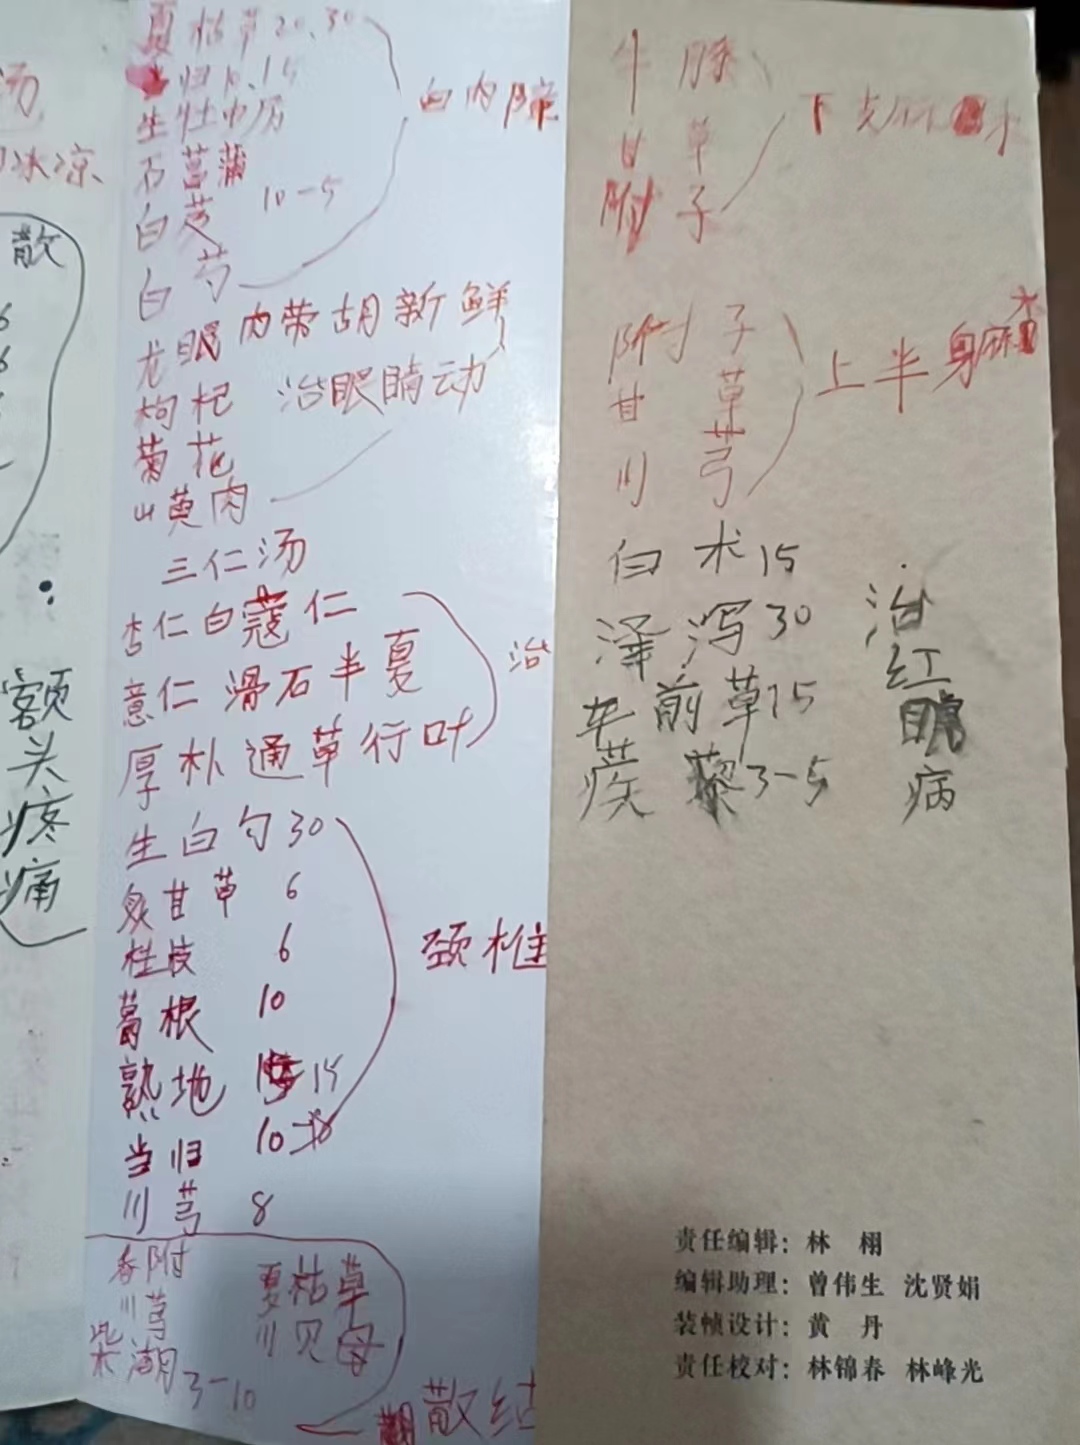 汤
冰凉
散
6
6
额
头
疼
痛
夏枯草20.30
当归10.15
生牡中厉
石菖蒲
白芝 10-5
白芍
白内障
龙眼内带胡新鲜
枸杞 治眼睛动
菊花
山萸肉
三仁汤
杏仁白蔻仁
意仁滑石半夏
厚朴通草行叶
治
生白勺30
炙甘草 6
桂枝 6
葛根 10
熟地 15
当归 10
川芎 8
颈椎
香附
川芎
柴湖3-10
夏枯草
川贝母
散结
牛膝
甘草
附子
下支麻木
附子
甘草
川芎
上半身麻木
白术15
泽泻30
车前草15
蒺藜3-5
治
红
眼
病
责任编辑：林 栩
编辑助理：曾伟生 沈贤娟
装帧设计：黄 丹
责任校对：林锦春 林峰光